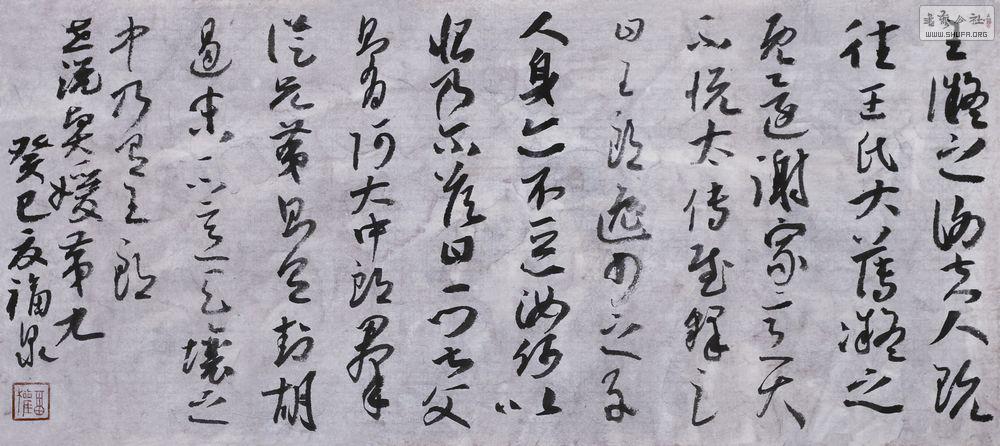 王凝之謝夫人既
往王氏大薄凝之
既還謝家意大
不悦太傅慰釋之
曰王郎逸少之子
人身亦不惡汝何以
恨乃尔答曰一門叔父
則有阿大中郎羣
從兄弟則有封胡
遏末不意天壤之
中乃有王郎
世說賢媛第九
癸巳夏福泉
書藝公社
WWW.SHUFA.ORG